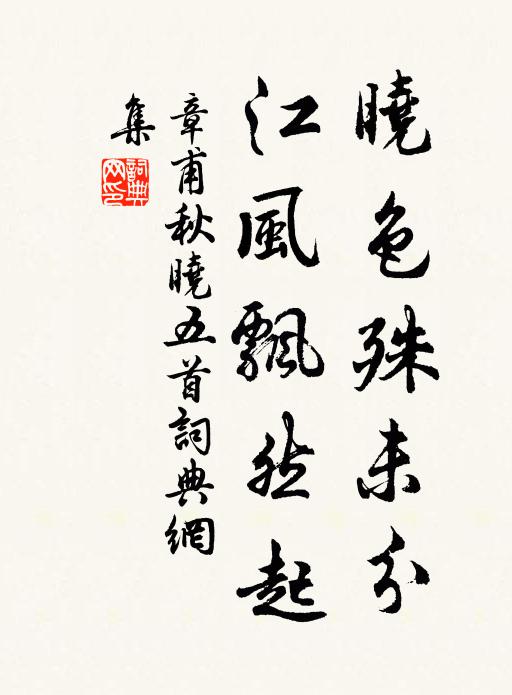 曉色殊未分
江風飄然起
章甫秋曉五首詞典網
集
詞典
网印